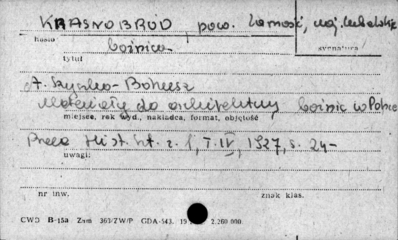 KRASNOBRÓD pow. Zamość, woj. lubelskie
hasło
bożnica
sygnatura
tytuł
A. Szyszko-Bohusz
Materiały do architektury bożnic w Polsce
miejsce, rok wyd., nakładca, format, objętość
Prace Hist. Szt. z. 1, T. IV, 1927, s. 24-
uwagi
nr inw.
znak klas.
CWD B-15a Zam 363/ZW/P GDA-543. 2.260.000.